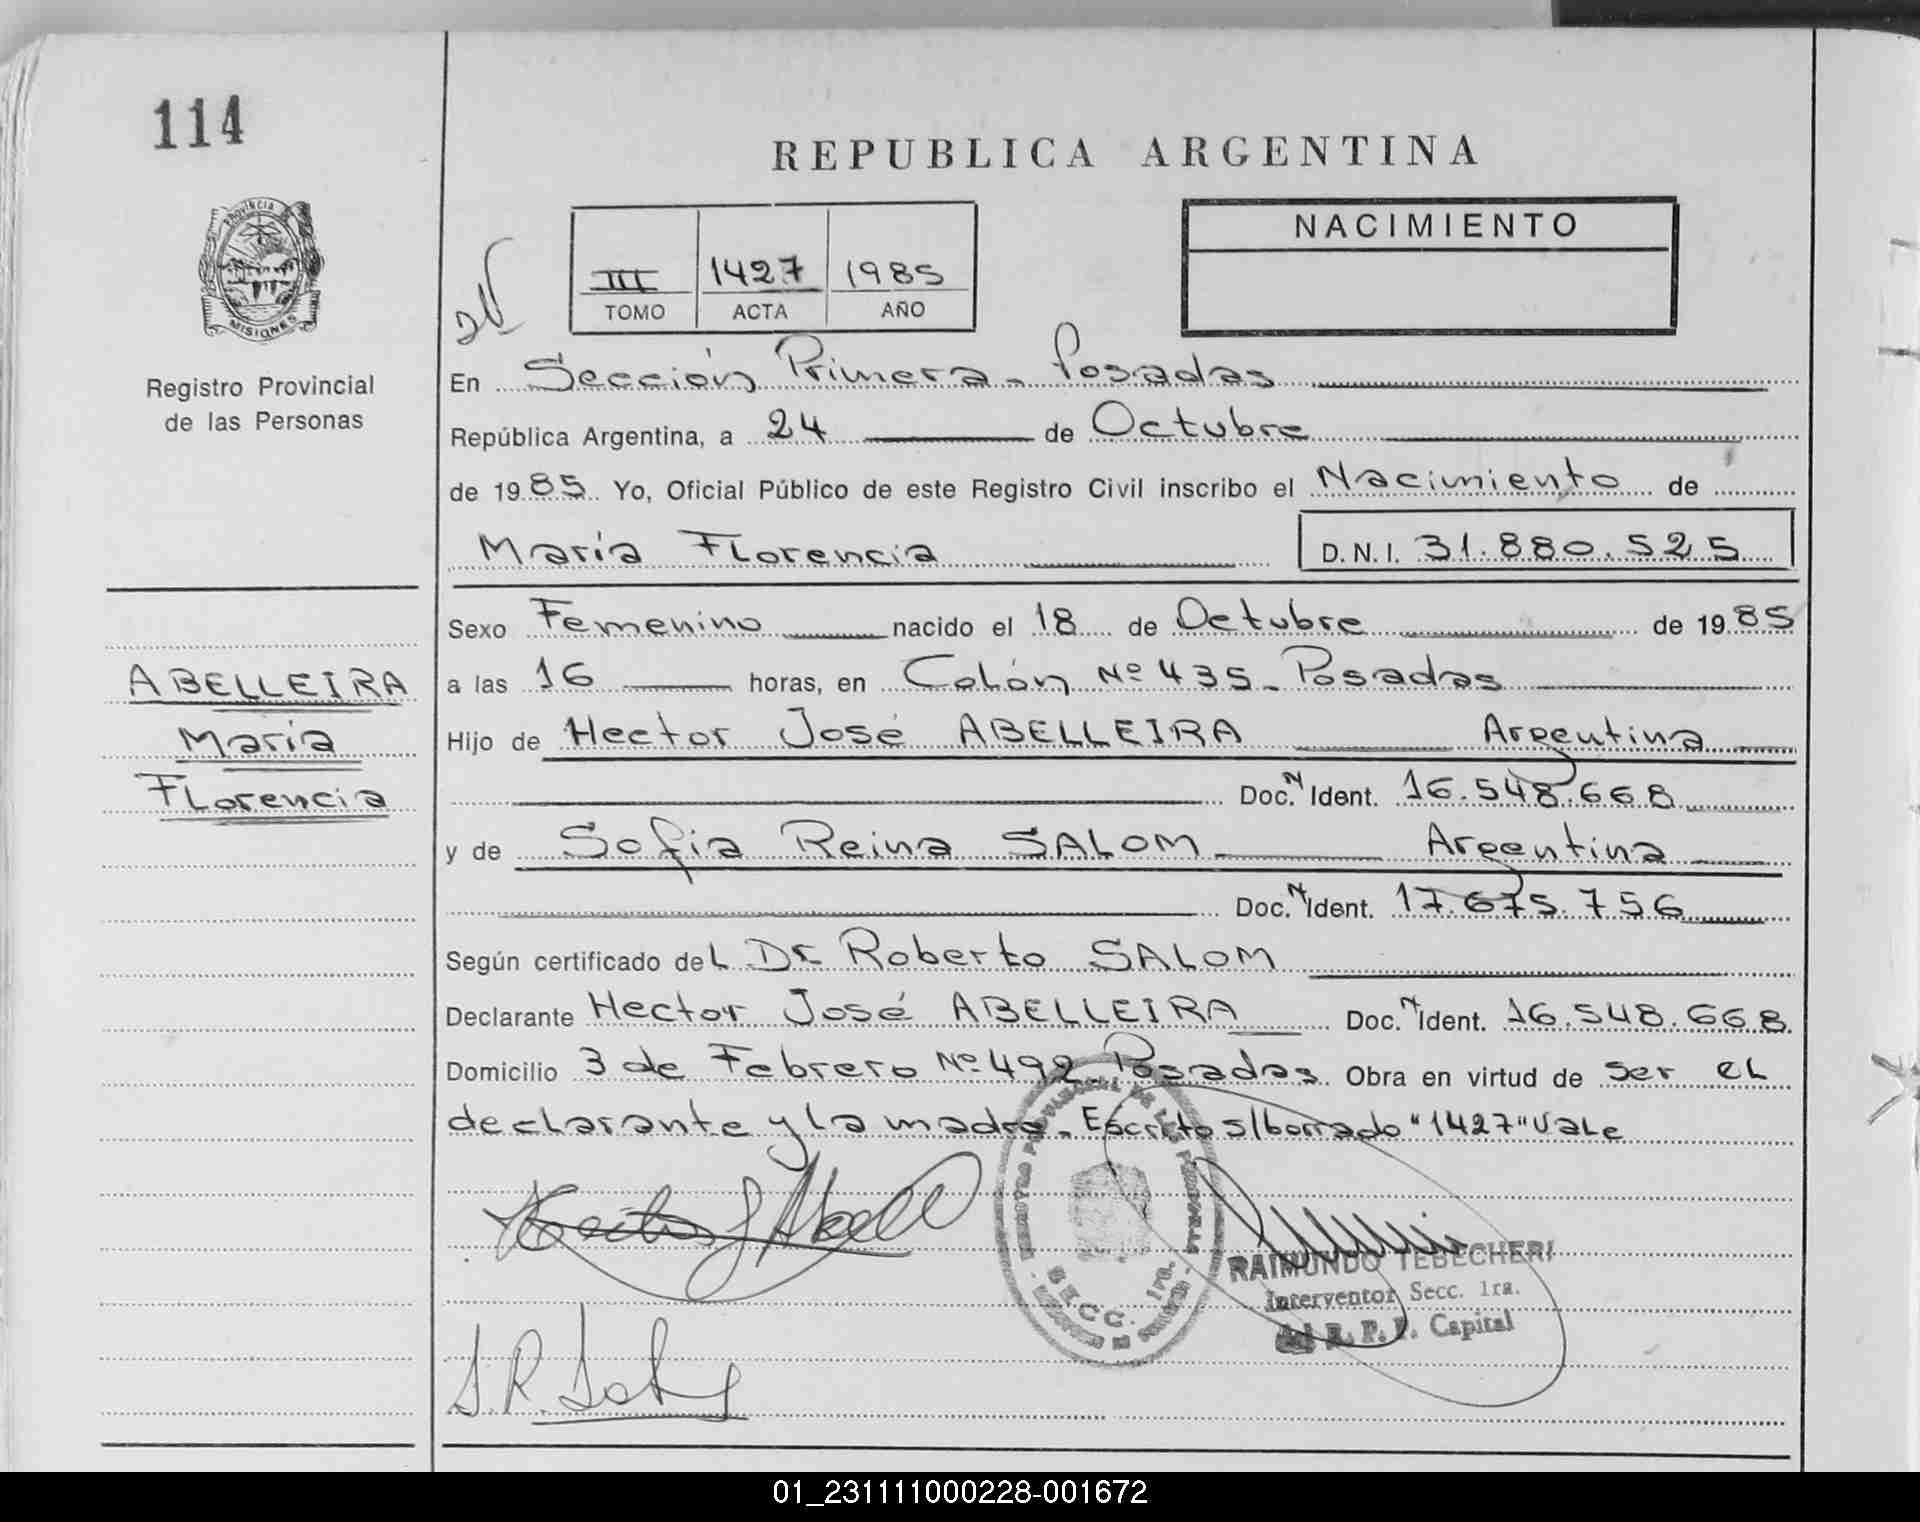 114
REPUBLICA ARGENTINA
PROVINCIA
MISIONES
Registro Provincial
de las Personas
III 1427 1985
TOMO ACTA AÑO
NACIMIENTO
En Sección Primera - Posadas
República Argentina, a 24 de Octubre
de 1985 Yo, Oficial Público de este Registro Civil inscribo el Nacimiento de
María Florencia D.N.I. 31.880.525
Sexo Femenino nacido el 18 de Octubre de 1985
ABELLEIRA
María
Florencia
a las 16 horas, en Colón Nº 435- Posadas
Hijo de Hector José ABELLEIRA Argentina
Doc. N Ident. 16.548.668
y de Sofia Reina SALOM Argentina
Doc. N Ident. 17.675.756
Según certificado del Dr Roberto SALOM
Declarante Hector José ABELLEIRA Doc. N Ident. 16.548.668
Domicilio 3 de Febrero Nº 492 Posadas Obra en virtud de ser el
declarante y la madre - Escrito s/borrado "1427" Vale
SECC. 1ra.
RAIMUNDO TEBECHERI
Interventor Secc. 1ra.
del R. P. P. Capital
01_231111000228-001672